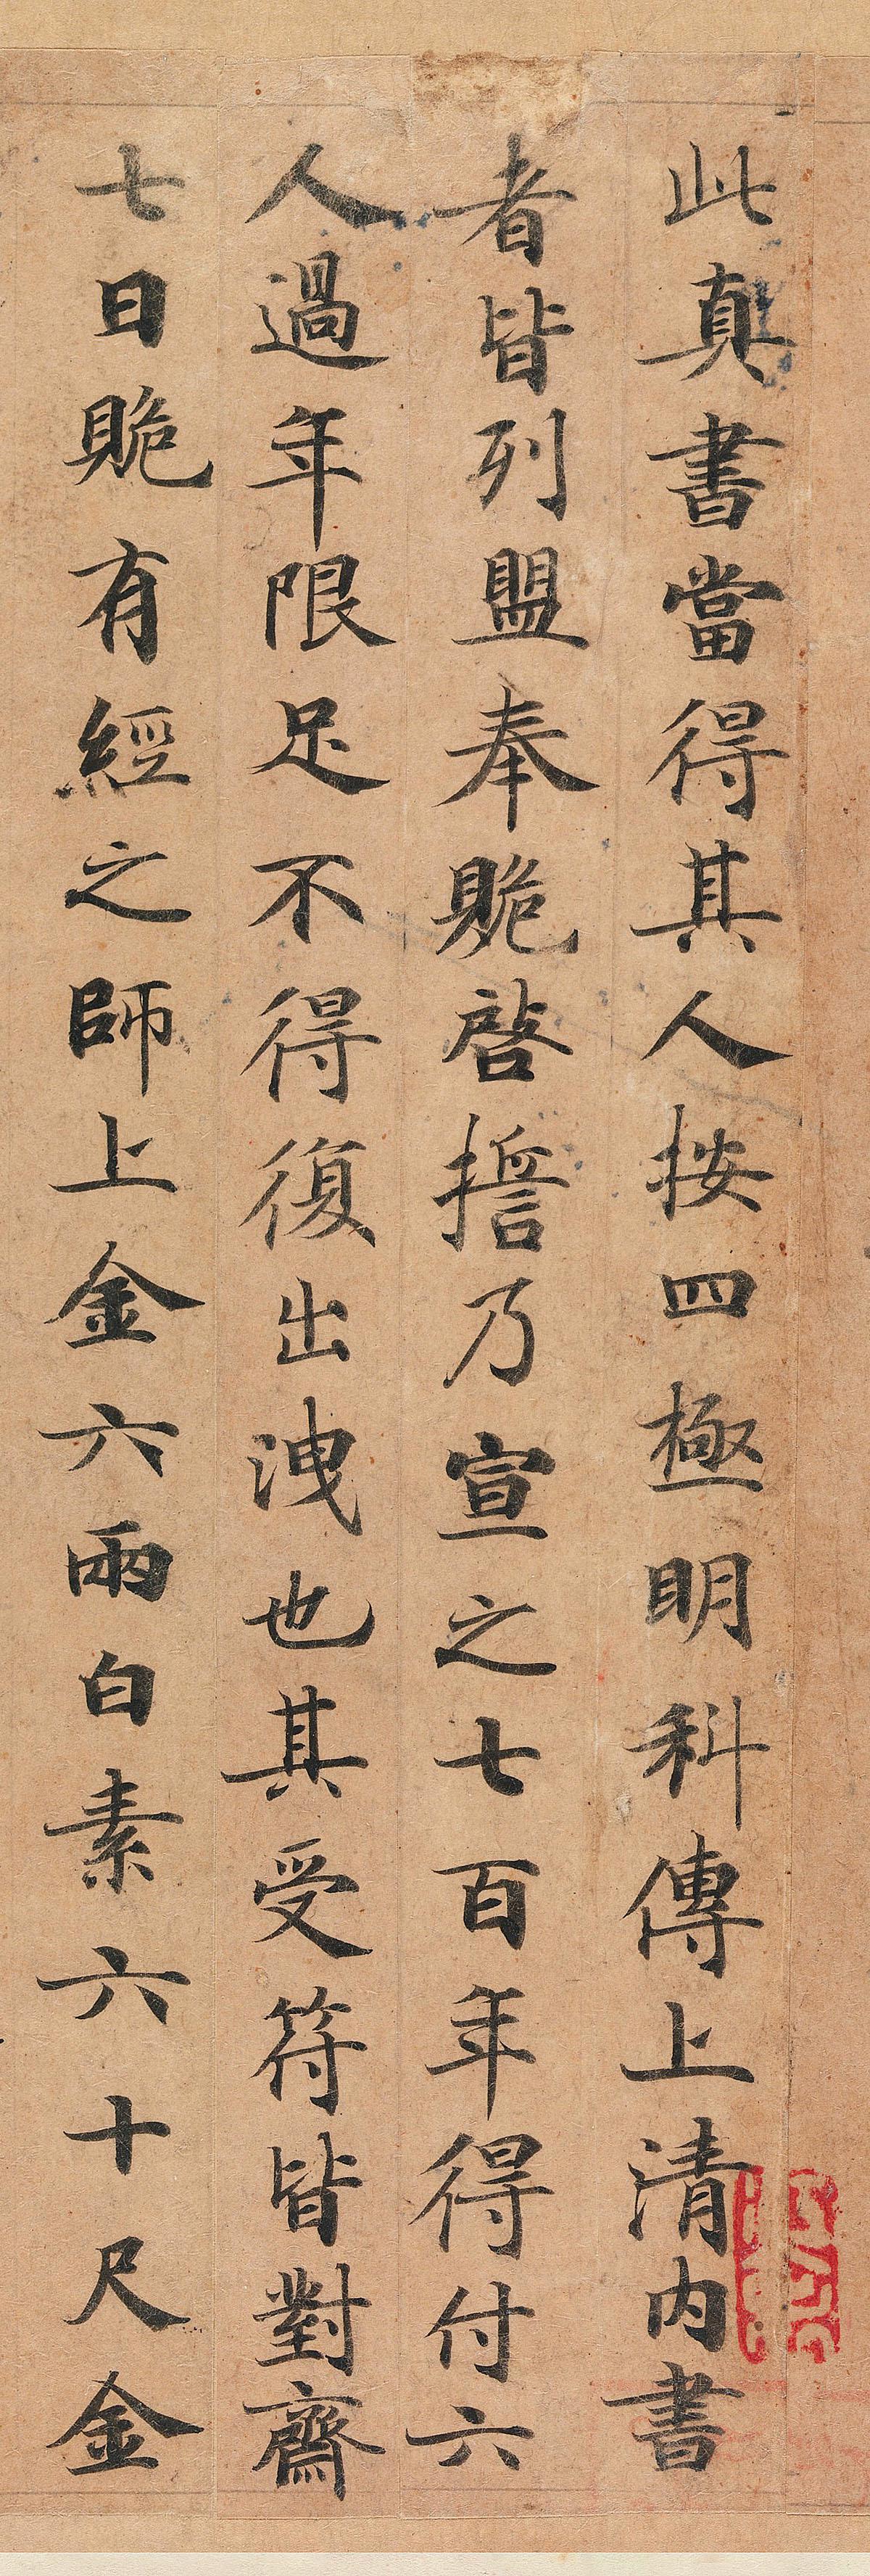 此真書當得其人按四極明科傳上清內書
者皆列盟奉賝啓誓乃宣之七百年得付六
人過年限足不得復出洩也其受符皆對齋
七日賝有經之師上金六兩白素六十尺金